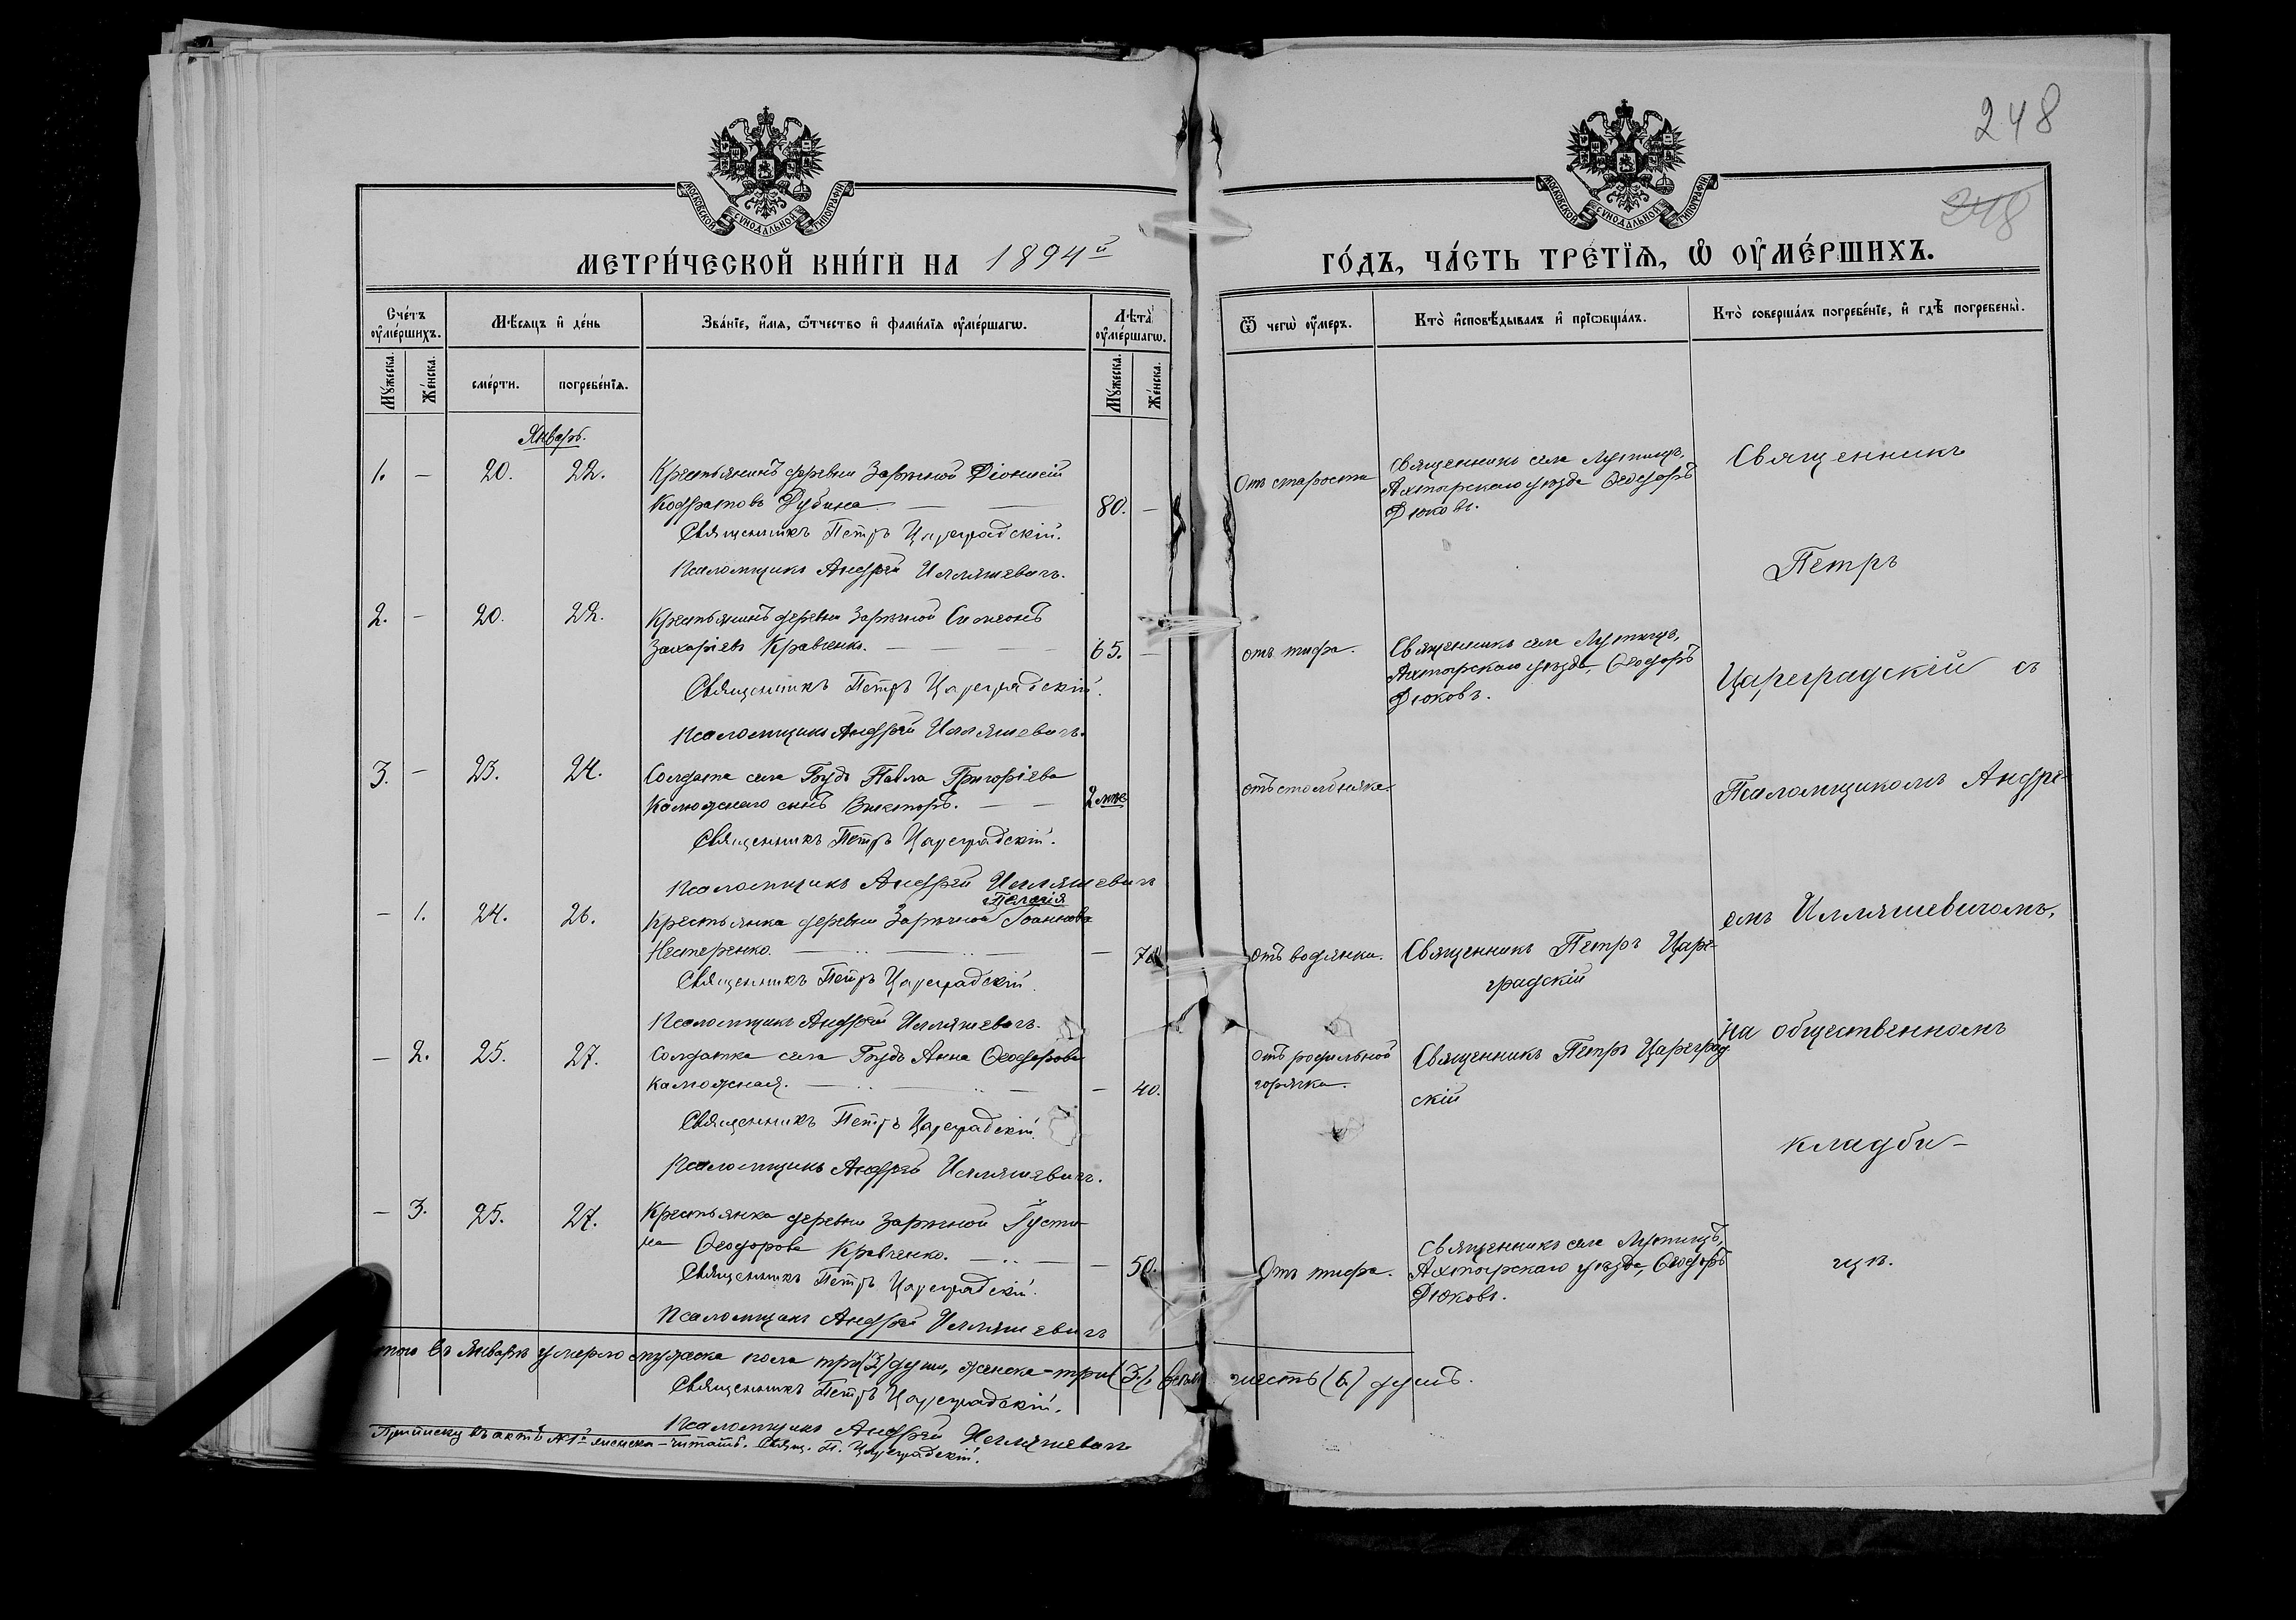 248
248
МОСКОВСКОЙ СУНОДАЛЬНОЙ ТИПОГРАФІИ
МОСКОВСКОЙ СУНОДАЛЬНОЙ ТИПОГРАФІИ
МЕТРИ́ЧЕСКОЙ КНИ́ГИ НА 1894й
ГО́ДЪ, ЧА́СТЬ ТРЕ́ТІѦ, Ѡ҆ ОУ҆МЕ́РШИХЪ.
Сче́тъ оу҆ме́ршихъ.
Мѣ́сяцъ и҆ де́нь
Зва́нїе, и҆́мѧ, ѻ҆́тчество и҆ фами́лїѧ оу҆ме́ршагѡ.
Лѣ́та̀ оу҆ме́ршагѡ.
Мꙋ́жеска.
Же́нска.
сме́рти.
погребе́нїѧ.
Мꙋ́жеска.
Же́нска.
Ѿ чегѡ̀ оу҆́меръ.
Кто̀ и҆сповѣ́дывалъ и҆ прїѡбща́лъ.
Кто̀ соверша́лъ погребе́нїе, и҆ гдѣ̀ погребены̀.
Январь.
1. — 20. 22. Крестьянинъ деревни Зарѣчной Діонисій
Кодратовъ Дубина — — 80. —
Священникъ Петръ Цареградскій.
Псаломщикъ Андрей Илляшевичъ.
Отъ старости
Священникъ села Лутищъ,
Ахтырскаго уѣзда Ѳеодоръ
Дюковъ.
Священникъ
Петръ
2. — 20. 22. Крестьянинъ деревни Зарѣчной Симеонъ
Захаріевъ Кравченко. — — — 65. —
Священникъ Петръ Цареградскій.
Псаломщикъ Андрей Илляшевичъ.
отъ тифа.
Священникъ села Лутищъ,
Ахтырскаго уѣзда, Ѳеодоръ
Дюковъ.
Цареградскій съ
3. — 23. 24. Солдата села Будъ Павла Григоріева
Калюжнаго сынъ Викторъ. — — 2 мѣс
Священникъ Петръ Цареградскій.
Псаломщикъ Андрей Илляшевичъ
отъ столбняка.
Псаломщикомъ Андре-
Пелагія
— 1. 24. 26. Крестьянка деревни Зарѣчной Іоаннова
Нестеренко. — — — 70
Священникъ Петръ Цареградскій.
Псаломщикъ Андрей Илляшевичъ.
отъ водянки.
Священникъ Петръ Царе-
градскій
емъ Илляшевичомъ,
— 2. 25. 27. Солдатка села Будъ Анна Ѳеодорова
Калюжная. — — — 40.
Священникъ Петръ Цареградскій.
Псаломщикъ Андрей Илляшевичъ.
отъ родильной
горячки.
Священникъ Петръ Цареград-
скій
на общественномъ
кладби-
— 3. 25. 27. Крестьянка деревни Зарѣчной Іусти-
на Ѳеодорова Кравченко. — — — 50.
Священникъ Петръ Цареградскій.
Псаломщикъ Андрей Илляшевичъ
Отъ тифа.
Священникъ села Лутищъ,
Ахтырскаго уѣзда, Ѳеодоръ
Дюковъ.
щѣ.
въ Январѣ умерло мужска пола три (3) души, женска – три (3), всего шесть (6) душъ.
Священникъ Петръ Цареградскій.
Псаломщикъ Андрей Илляшевичъ
Приписку въ актѣ № 1й женска – читать. Свящ. П. Цареградскій.